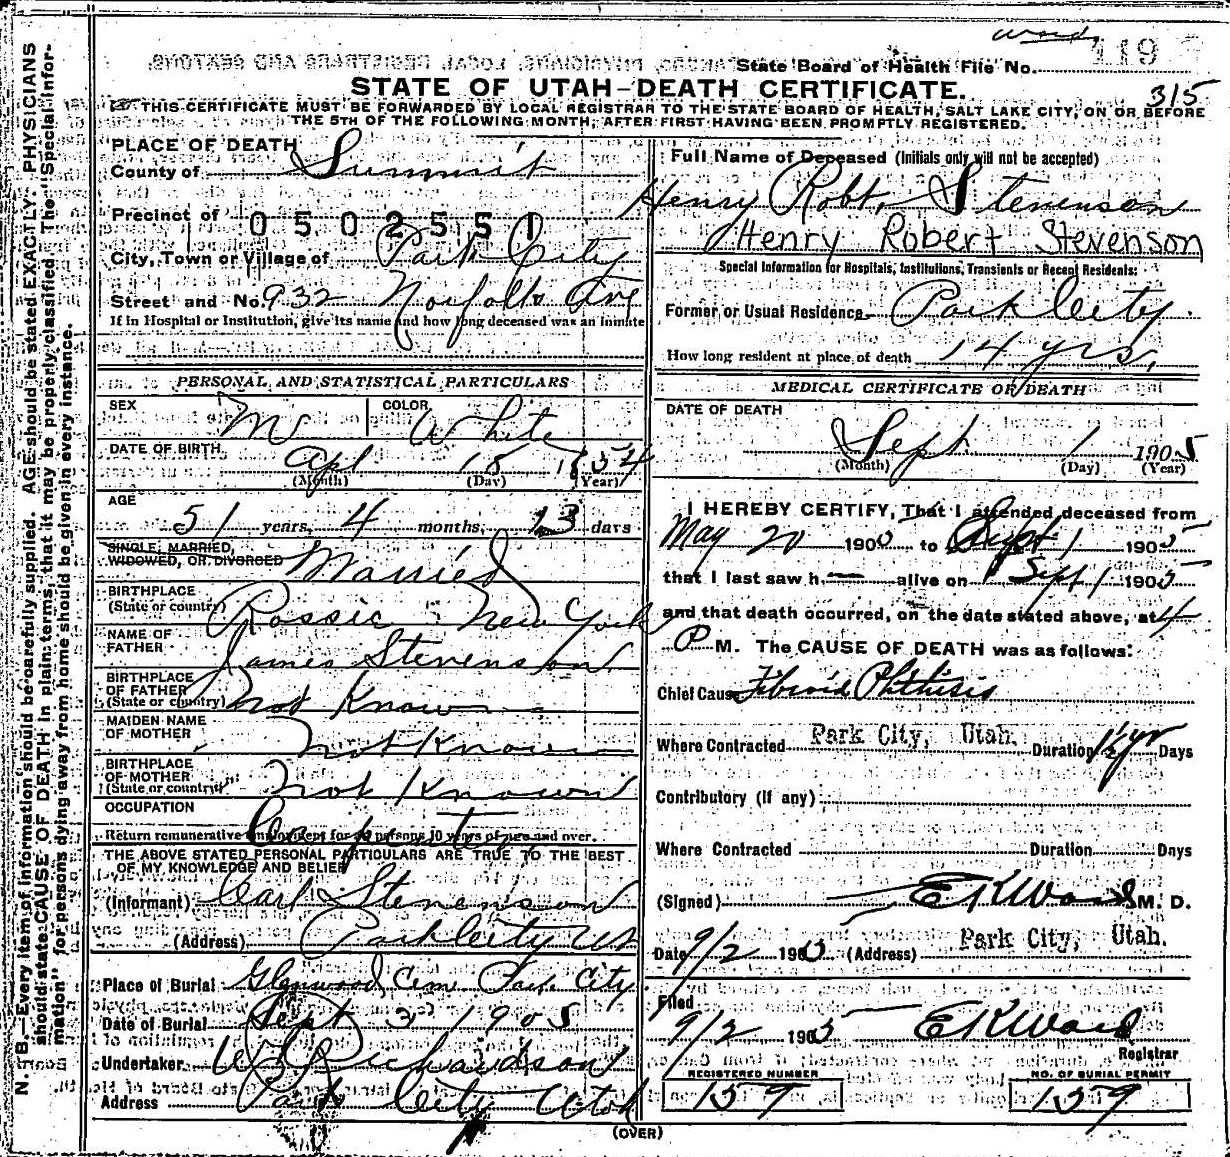 ward
119
State Board of Health File No.
STATE OF UTAH-DEATH CERTIFICATE.
315
THIS CERTIFICATE MUST BE FORWARDED BY LOCAL REGISTRAR TO THE STATE BOARD OF HEALTH, SALT LAKE CITY, ON OR BEFORE
THE 5TH OF THE FOLLOWING MONTH, AFTER FIRST HAVING BEEN PROMPTLY REGISTERED.
PLACE OF DEATH
County of Summit
Precinct of
0502551
City, Town or Village of Park City
Street and No. 932 Norfolk Ave
If in Hospital or Institution, give its name and how long deceased was an inmate
PERSONAL AND STATISTICAL PARTICULARS
SEX M COLOR White
DATE OF BIRTH Apl 18 1854
(Month) (Day) (Year)
AGE 51 years, 4 months, 13 days
SINGLE, MARRIED,
WIDOWED, OR DIVORCED Married
BIRTHPLACE
(State or country) Rossie New York
NAME OF
FATHER James Stevenson
BIRTHPLACE
OF FATHER
(State or country) Not Known
MAIDEN NAME
OF MOTHER Not Known
BIRTHPLACE
OF MOTHER
(State or country) Not Known
OCCUPATION Carpenter
Return remunerative employment for all persons 10 years of age and over.
THE ABOVE STATED PERSONAL PARTICULARS ARE TRUE TO THE BEST
OF MY KNOWLEDGE AND BELIEF
(Informant) Carl Stevenson
(Address) Park City Ut
Place of Burial Glenwood Cem Park City
Date of Burial Sept 3 1905
Undertaker Richardson
Address Park City Utah
Full Name of Deceased (Initials only will not be accepted)
Henry Robt. Stevenson
Henry Robert Stevenson
Special Information for Hospitals, Institutions, Transients or Recent Residents:
Former or Usual Residence Park City
How long resident at place of death 14 yrs,
MEDICAL CERTIFICATE OF DEATH
DATE OF DEATH
Sept 1 1905
(Month) (Day) (Year)
I HEREBY CERTIFY, That I attended deceased from
May 20 1905 to Sept 1 1905
that I last saw h alive on Sept 1 1905
and that death occurred, on the date stated above, at 4
P M. The CAUSE OF DEATH was as follows:
Chief Cause Fibroid Phthisis
Where Contracted Park City, Utah. Duration yr Days
Contributory (if any)
Where Contracted Duration Days
(Signed) E K Ward M. D.
Date 9/2 1905 (Address) Park City, Utah.
Filed
9/2 1905 E K Ward
Registrar
REGISTERED NUMBER
159
NO. OF BURIAL PERMIT
159
(OVER)
N. B.—Every item of information should be carefully supplied. AGE should be stated EXACTLY. PHYSICIANS
should state CAUSE OF DEATH in plain terms, that it may be properly classified. The "Special Infor-
mation" for persons dying away from home should be given in every instance.